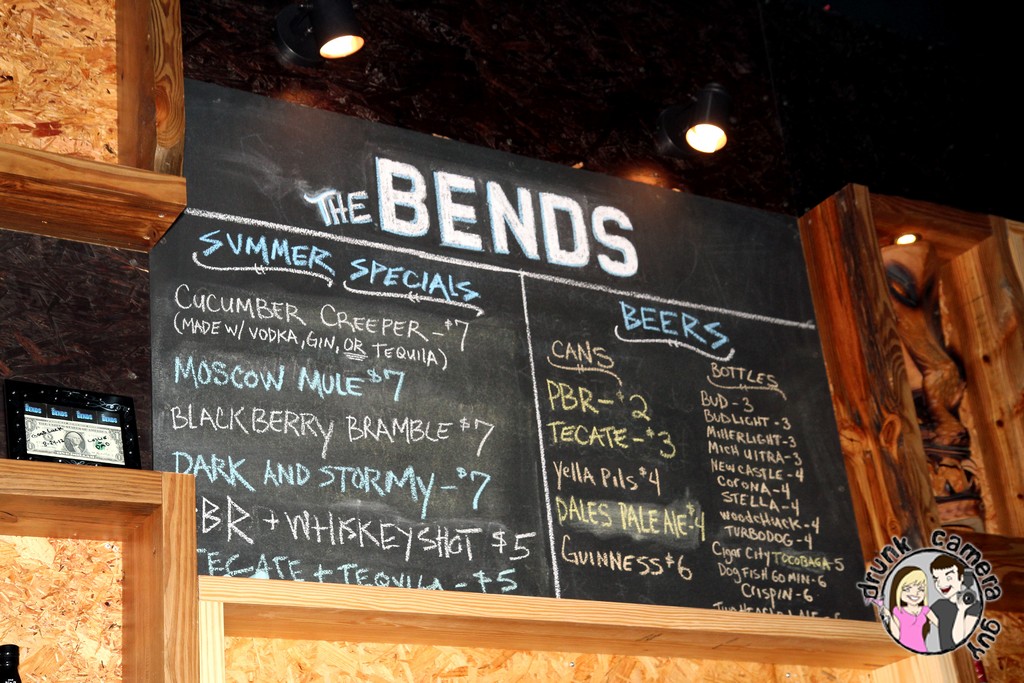 THE BENDS
SUMMER SPECIALS
CUCUMBER CREEPER - $7
(MADE W/ VODKA, GIN, OR TEQUILA)
MOSCOW MULE $7
BLACKBERRY BRAMBLE $7
DARK AND STORMY - $7
BR + WHISKEY SHOT $5
TECATE + TEQUILA - $5
BEERS
CANS
PBR - $2
TECATE - $3
Yella Pils $4
DALES PALE ALE $4
GUINNESS $6
BOTTLES
BUD - 3
BUDLIGHT - 3
MillerLIGHT - 3
MICH ULTRA - 3
NEWCASTLE - 4
CORONA - 4
STELLA - 4
WOODCHUCK - 4
TURBODOG - 4
Cigar City TOCOBAGA - 5
DOGFISH 60 MIN - 6
CRISPIN - 6
drunk camera guy